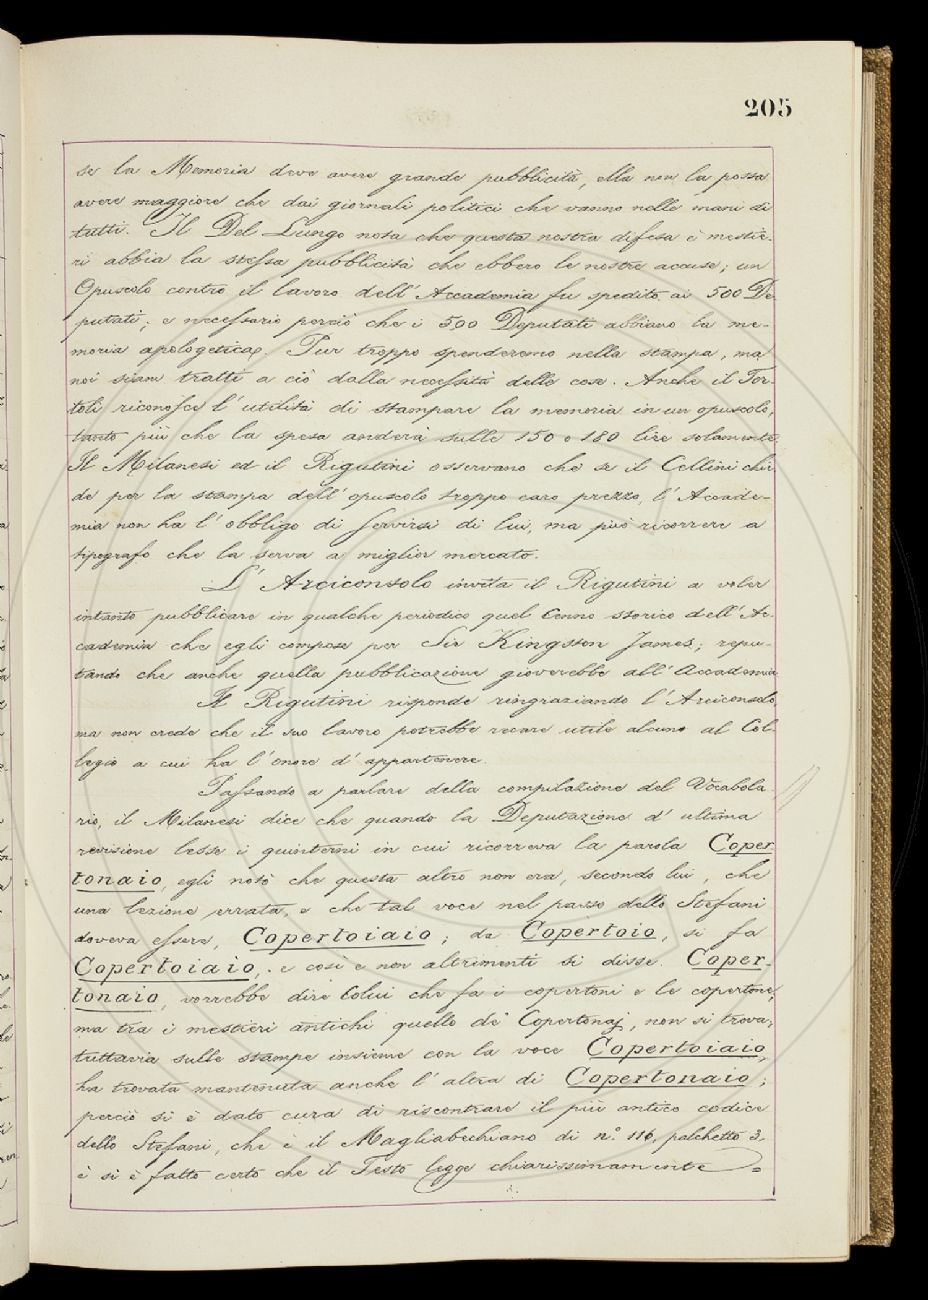 205
se la Memoria deve avere grande pubblicità, ella non la possa
avere maggiore che dai giornali politici che vanno nelle mani di
tutti. Il Del Lungo nota che questa nostra difesa è mestie-
ri abbia la stessa pubblicità che ebbero le nostre accuse; un
Opuscolo contro il lavoro dell'Accademia fu spedito ai 500 De
putati; è necessario perciò che i 500 Deputati abbiano la me-
moria apologetica. Pur troppo spenderemo nella stampa, ma
noi siam tratti a ciò dalla necessità delle cose. Anche il Tor-
toli riconosce l'utilità di stampare la memoria in un opuscolo,
tanto più che la spesa anderà sulle 150 o 180 lire solamente.
Il Milanesi ed il Rigutini osservano che se il Cellini chie
de per la stampa dell'opuscolo troppo caro prezzo, l'Accade-
mia non ha l'obbligo di servirsi di lui, ma può ricorrere a
tipografo che la serva a miglior mercato.
L'Arciconsolo invita il Rigutini a voler
intanto pubblicare in qualche periodico quel Cenno storico dell'Ac-
cademia che egli compose per Sir Kingston James; repu-
tando che anche quella pubblicazione gioverebbe all'Accademia.
Il Rigutini risponde ringraziando l'Arciconsolo,
ma non crede che il suo lavoro potrebbe recare utile alcuno al Col-
legio a cui ha l'onore d'appartenere.
Passando a parlare della compilazione del Vocabola-
rio, il Milanesi dice che quando la Deputazione d'ultima
revisione lesse i quinterni in cui ricorreva la parola Coper
tonaio, egli notò che questa altro non era, secondo lui, che
una lezione errata, e che tal voce nel passo dello Stefani
doveva essere, Copertoiaio; da Copertoio, si fa
Copertoiaio, e così e non altrimenti si disse. Coper-
tonaio, vorrebbe dire Colui che fa i copertoni e le copertone,
ma tra i mestieri antichi quello de' Copertonaj, non si trova;
tuttavia sulle stampe insieme con la voce Copertoiaio,
ha trovata mantenuta anche l'altra di Copertonaio;
perciò si è dato cura di riscontrare il più antico codice
dello Stefani, che è il Magliabechiano di n.° 116, palchetto 3,
e si è fatto certo che il Testo legge chiarissimamente